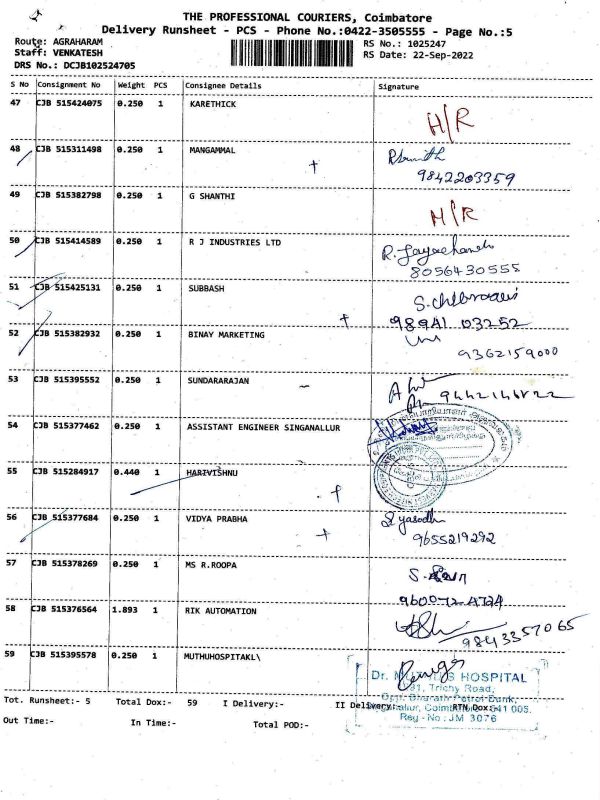 THE PROFESSIONAL COURIERS, Coimbatore
Delivery Runsheet - PCS - Phone No.:0422-3505555 - Page No.:5
Route: AGRAHARAM RS No.: 1025247
Staff: VENKATESH RS Date: 22-Sep-2022
DRS No.: DCJB102524705
S No Consignment No Weight PCS Consignee Details Signature
47 CJB 515424075 0.250 1 KARETHICK H/R
48 CJB 515311498 0.250 1 MANGAMMAL
9842203359
49 CJB 515382798 0.250 1 G SHANTHI H/R
50 CJB 515414589 0.250 1 R J INDUSTRIES LTD
8056430555
51 CJB 515425131 0.250 1 SUBBASH
98941 03252
52 CJB 515382932 0.250 1 BINAY MARKETING
9362159000
53 CJB 515395552 0.250 1 SUNDARARAJAN
54 CJB 515377462 0.250 1 ASSISTANT ENGINEER SINGANALLUR
55 CJB 515284917 0.440 1 HARIVISHNU
56 CJB 515377684 0.250 1 VIDYA PRABHA
9655219292
57 CJB 515378269 0.250 1 MS R.ROOPA
58 CJB 515376564 1.893 1 RIK AUTOMATION
9843357065
59 CJB 515395578 0.250 1 MUTHUHOSPITAKL\
Dr. HOSPITAL
Trichy Road,
Reg - No : JM 3076
Tot. Runsheet:- 5 Total Dox:- 59 I Delivery:- II Delivery:- RTN Dox:-
Out Time:- In Time:- Total POD:-